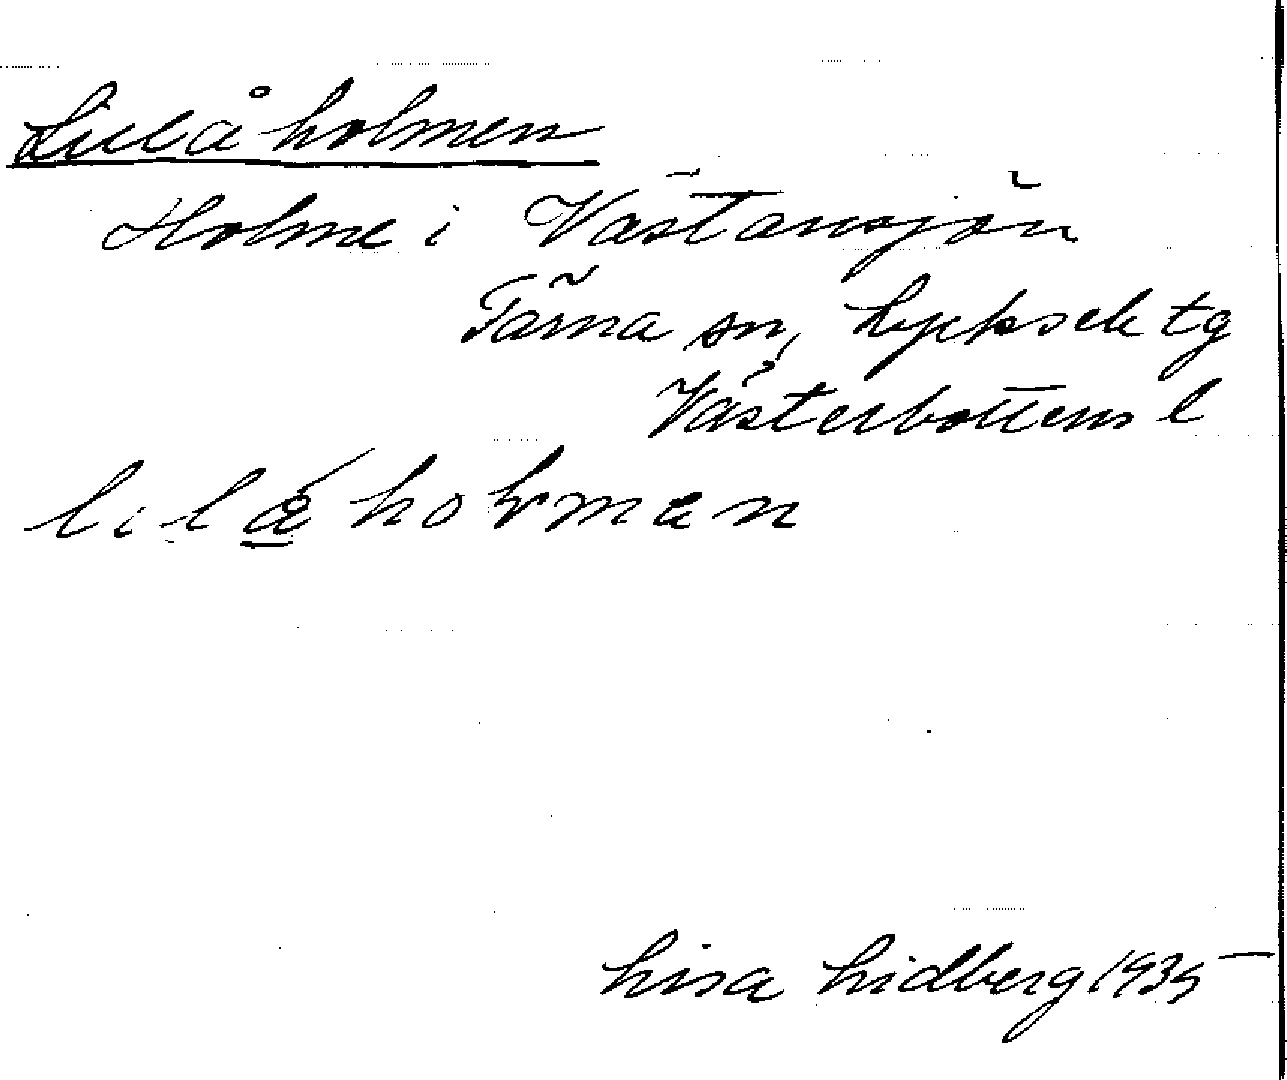 Lillåholmen
Holme i Västansjön
Tärna sn, Lycksele tg
Västerbottens l
Lisa Lidberg 1935